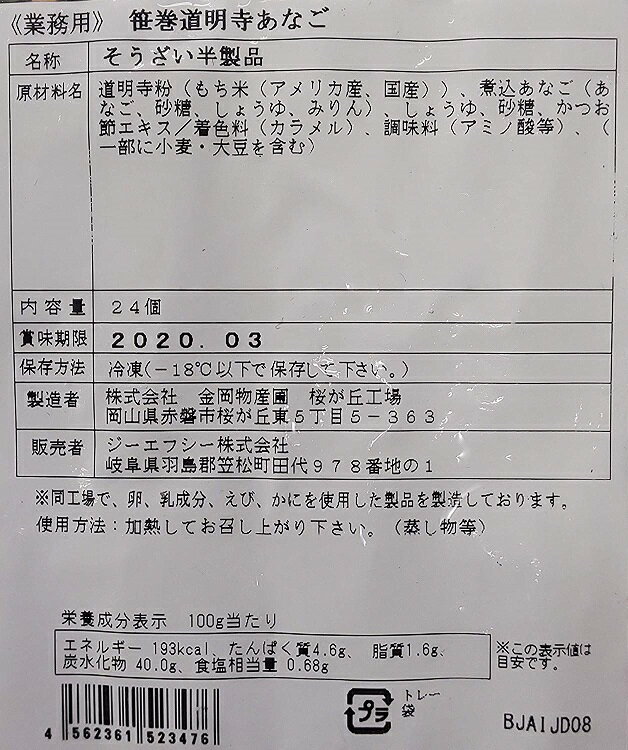 《業務用》 笹巻道明寺あなご
名称 そうざい半製品
原材料名 道明寺粉（もち米（アメリカ産、国産））、煮込あなご（あ
なご、砂糖、しょうゆ、みりん）、しょうゆ、砂糖、かつお
節エキス／着色料（カラメル）、調味料（アミノ酸等）、（
一部に小麦・大豆を含む）
内容量 24個
賞味期限 2020.03
保存方法 冷凍(－18℃以下で保存して下さい。)
製造者 株式会社 金岡物産園 桜が丘工場
岡山県赤磐市桜が丘東5丁目5－363
販売者 ジーエフシー株式会社
岐阜県羽島郡笠松町田代978番地の1
※同工場で、卵、乳成分、えび、かにを使用した製品を製造しております。
使用方法：加熱してお召し上がり下さい。（蒸し物等）
栄養成分表示 100g当たり
エネルギー 193kcal、たんぱく質4.6g、 脂質1.6g、
炭水化物 40.0g、食塩相当量 0.68g
※この表示値は
目安です。
プラ
トレー
袋
4 562361 523476
BJAIJD08